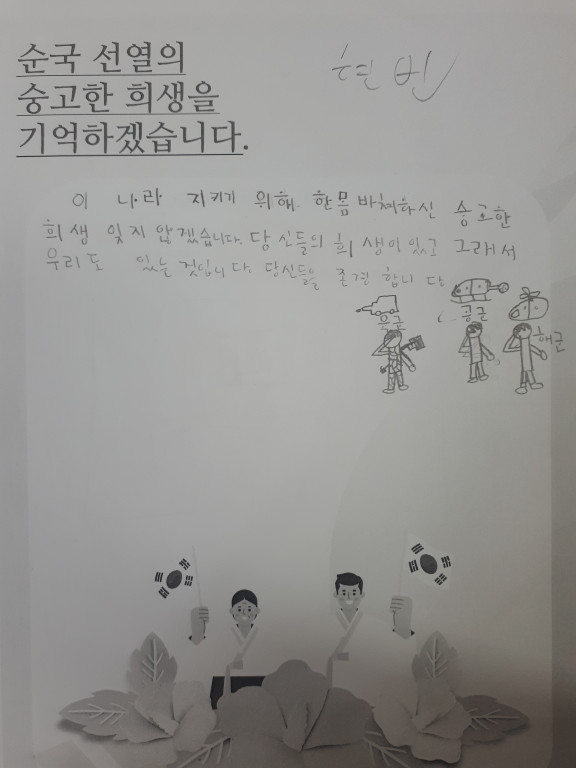 순국 선열의
현빈
숭고한 희생을
기억하겠습니다.
이 나라 지키기 위해 한몸 바쳐하신 숭고한
희생 잊지 않겠습니다. 당신들의 희생이있고 그래서
우리도 있는 것입니다. 당신들을 존경 합니 다
육군 공군
해군